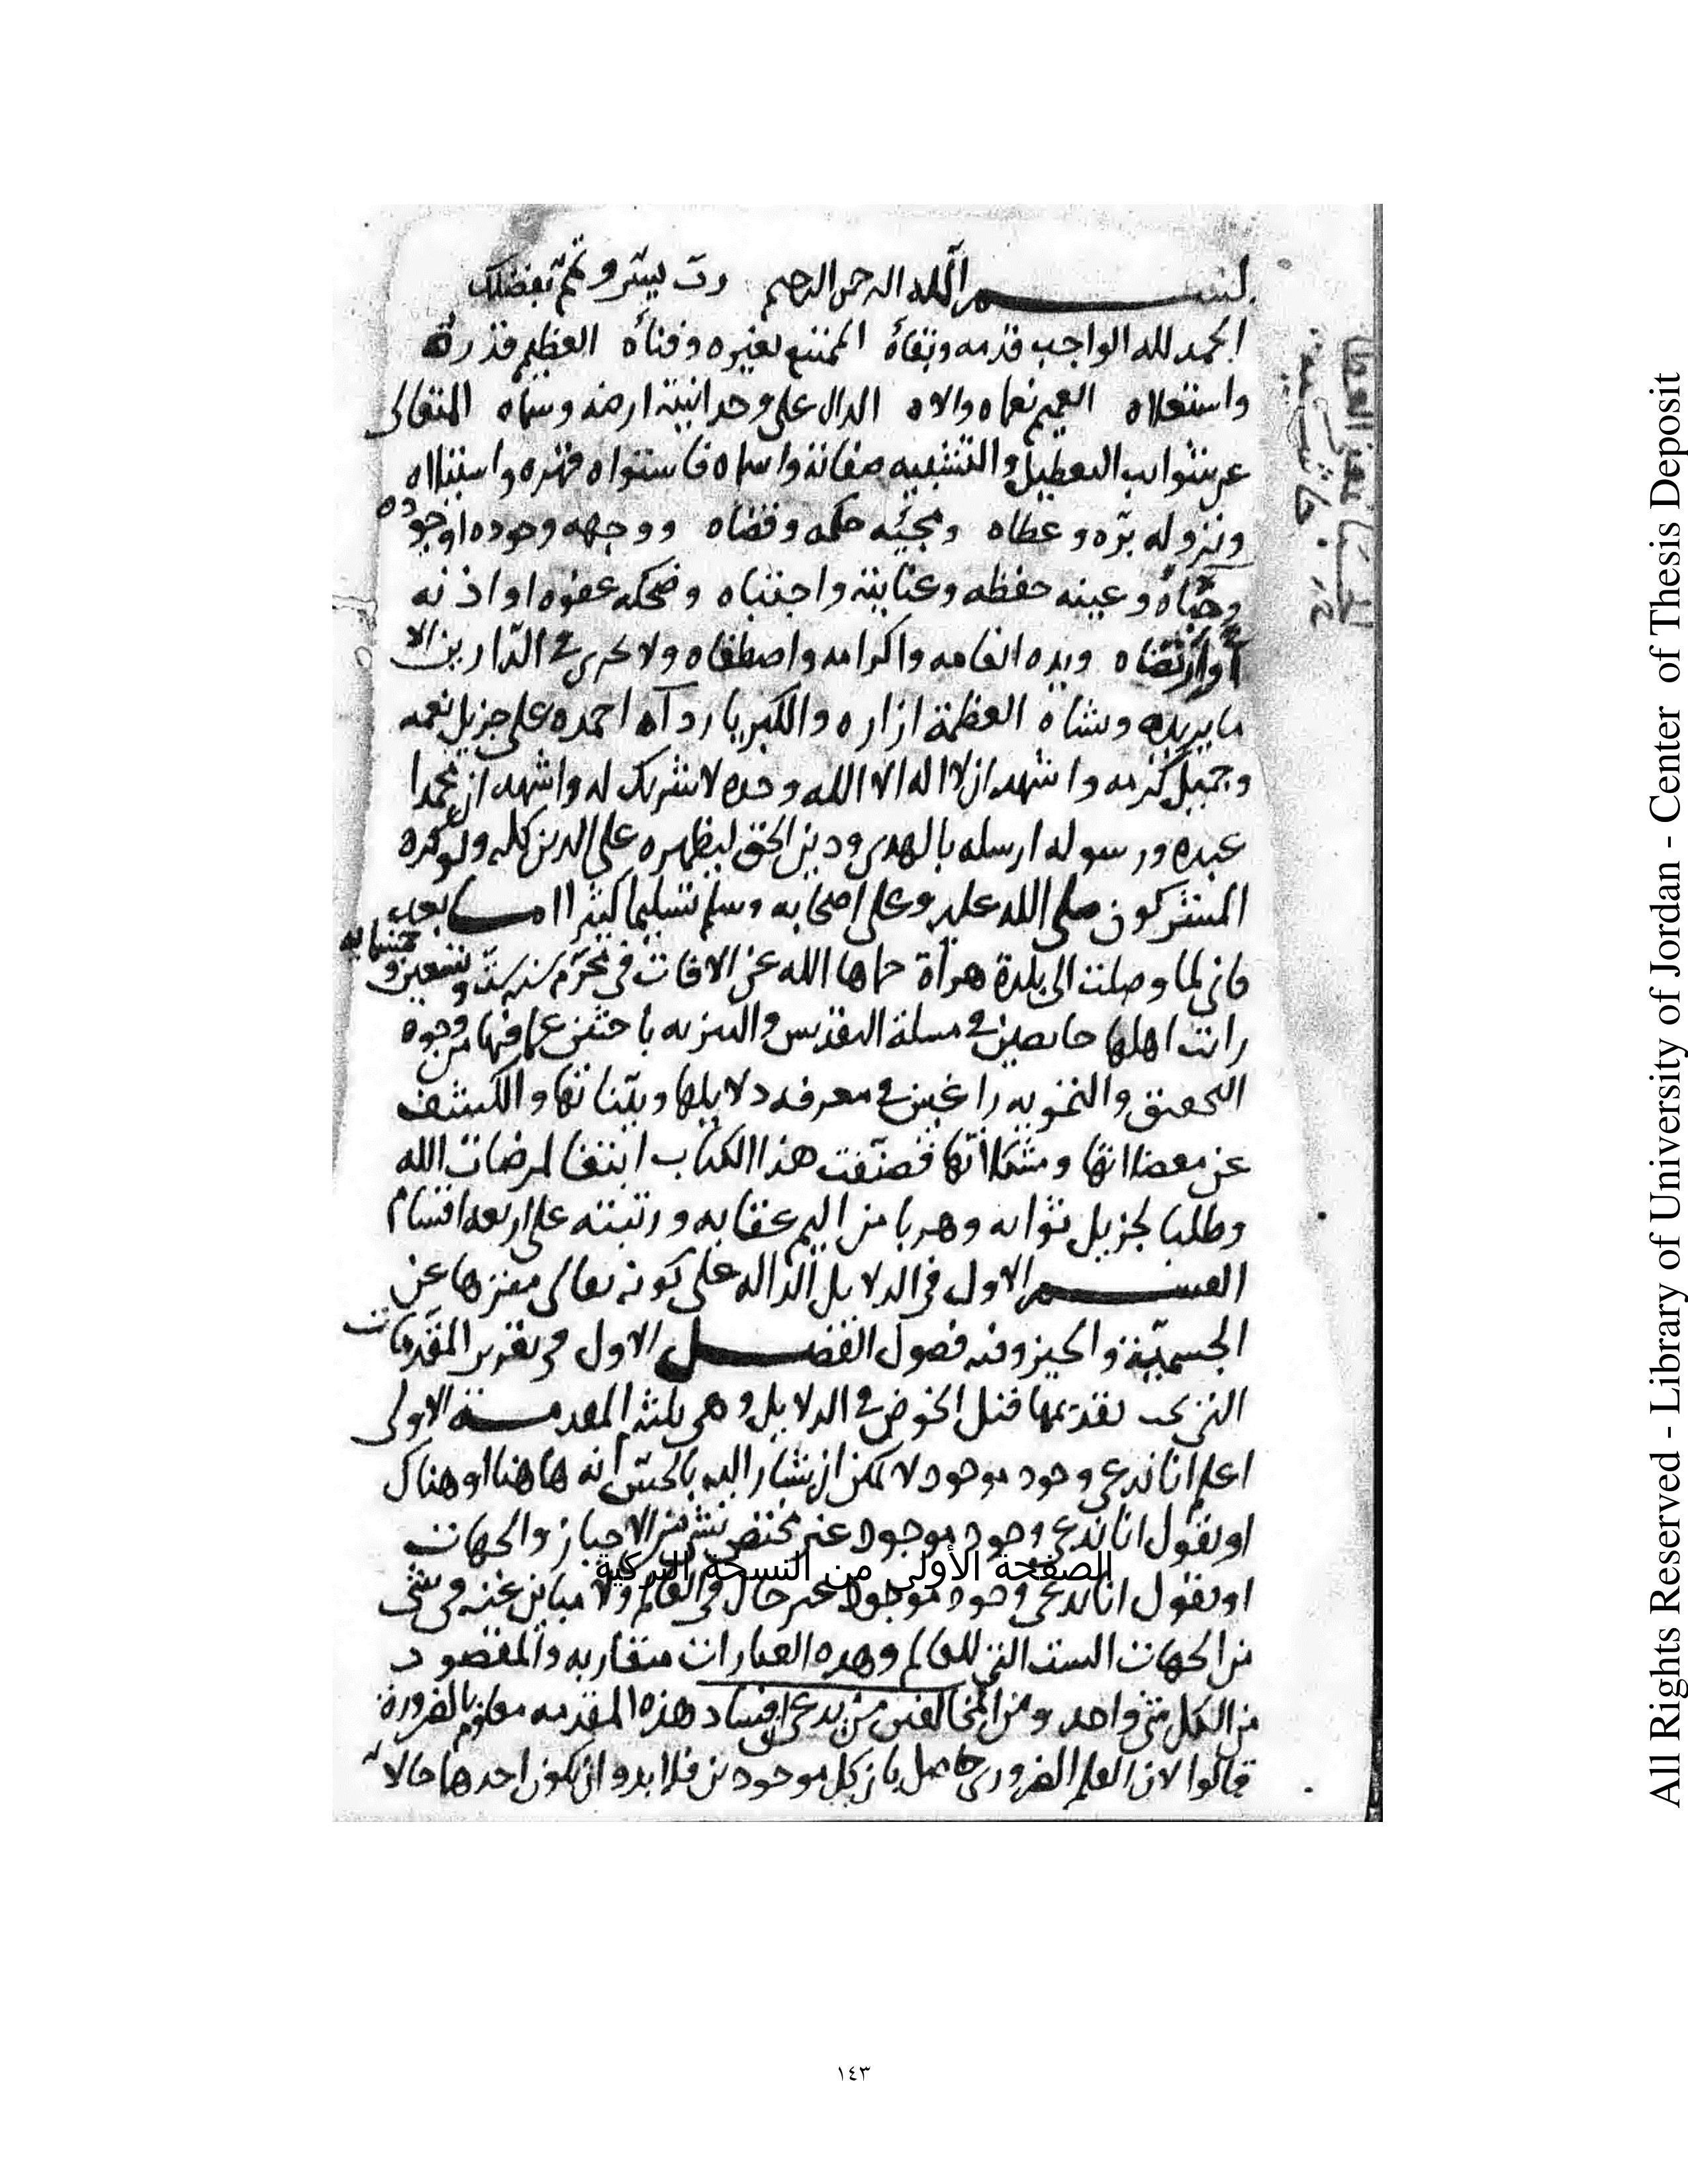 بســـم الله الرحمن الرحيم رب يسر وتمم بفضلك
الحمد لله الواجب قدمه وبقاؤه الممتنع تغيره وفناؤه العظيم قدره
واستعلاه العميم نعماه والاه الدال على وحدانيته ارضه وسماه المتعالى
عن شوايب التعطيل والتشبيه صفاته واسماه فاستواه قهره واستيلاه
ونزوله بره وعطاه ومجيئه حكمه وقضاه ووجهه وجوده او جوده
وحباه وعينه حفظه وعنايته واجتباه وضحكه عفوه او اذنه
او ارتضاه ويده انعامه واكرامه واصطفاه ولا يجرى في الدارين الا
ما يريده ويشاه العظمة ازاره والكبريا رداه احمده على جزيل نعمه
وجميل كرمه واشهد ان لا اله الا الله وحده لا شريك له واشهد ان محمدا
عبده ورسوله ارسله بالهدى ودين الحق ليظهره على الدين كله ولو كره
المشركون صلى الله عليه وعلى اصحابه وسلم تسليما كثيرا امـــا بعد
فانى لما وصلت الى بلدة هراة حماها الله عن الافات فى محرم سنه ست وتسعين وخمسمايه
رايت اهلها خايضين في مسلة التقديس والتنزيه باحثين عما فيها من وجوه
التحقيق والتمويه راغبين في معرفه دلايلها وبيناتها والكشف
عن معضلاتها ومشكلاتها فصنفت هذا الكتاب ابتغا لمرضات الله
وطلبا لجزيل ثوابه وهربا من اليم عقابه ورتبته على اربعه اقسام
القســـم الاول فى الدلايل الداله على كونه تعالى منزها عن
الجسمية والحيز وفيه فصول الفصـــل الاول فى تقرير المقدمات
التي يجب تقديمها قبل الخوض في الدلايل وهى ثلثه المقدمـــة الاولى
اعلم انا ندعى وجود موجود لا يمكن ان يشار اليه بالحس انه هاهنا او هناك
او نقول انا ندعى وجود موجود غير مختص بشى من الاحياز والجهات
الصفحة الأولى من النسخة التركية
او نقول انا ندعى وجود موجود غير حال فى العالم ولا مباين عنه فى شى
من الجهات الست التي للعالم وهذه العبارات متقاربه والمقصود
من الكل شى واحد ومن المخالفين من يدعى ان فساد هذه المقدمه معلوم بالضرورة
قالوا لان العلم الضرورى حاصل بان كل موجودين فلا بد وان يكون احدهما حالا
١٤٣
All Rights Reserved - Library of University of Jordan - Center of Thesis Deposit